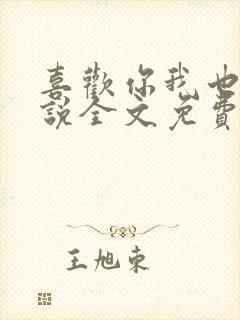 喜歡你我也
說全文免費
王旭東